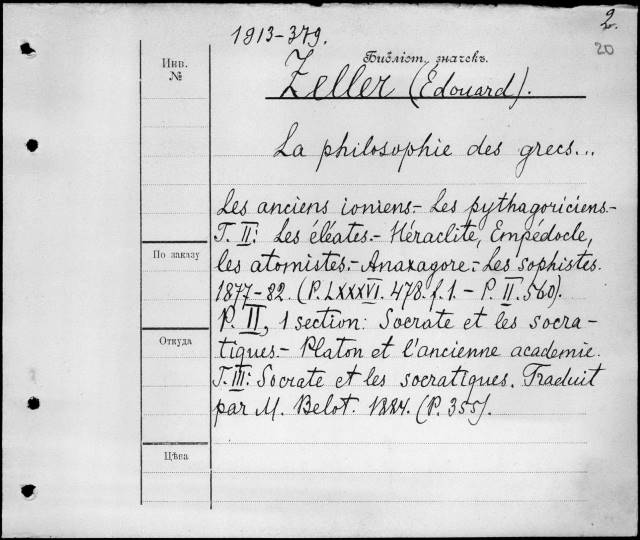 2.
20
1913-379.
Инв.
№
Библіот. значекъ.
Zeller (Edouard).
La philosophie des grecs...
Les anciens ioniens.- Les pythagoriciens.-
T. II: Les éléates.- Héraclite, Empédocle,
les atomistes.- Anaxagore.- Les sophistes.
1877-82. (P. LXXXVI. 478. f. 1. - P. II. 560).
P. II, 1 section: Socrate et les socra-
tiques.- Platon et l'ancienne academie.
T. III: Socrate et les socratiques. Traduit
par M. Belot. 1884. (P. 355).
По заказу
Откуда
Цѣна